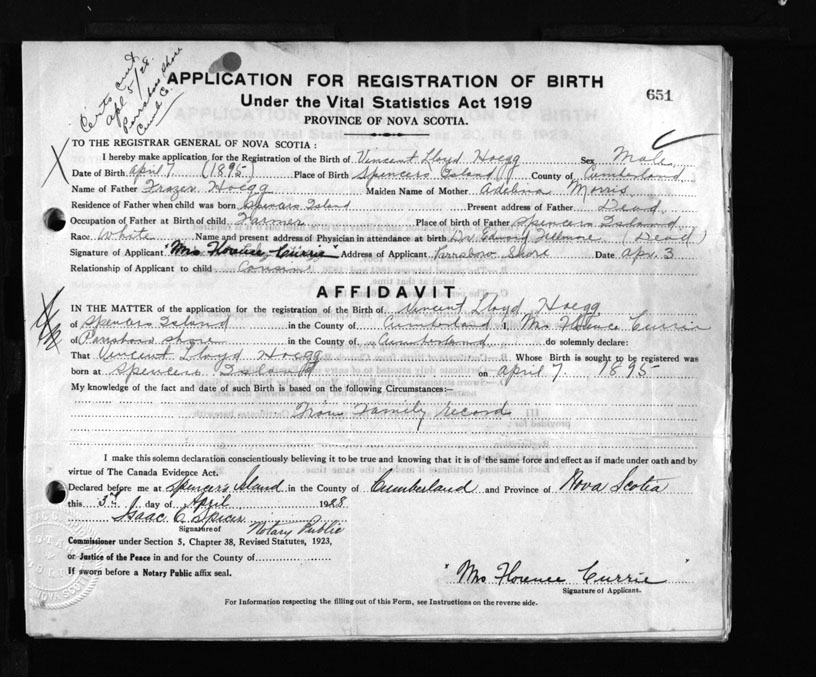 Certs cut
Apl 5/28
Parrsboro Shore
Cumb Co.
APPLICATION FOR REGISTRATION OF BIRTH
651
Under the Vital Statistics Act 1919
PROVINCE OF NOVA SCOTIA.
TO THE REGISTRAR GENERAL OF NOVA SCOTIA :
I hereby make application for the Registration of the Birth of Vincent Lloyd Hoegg Sex Male
Date of Birth April 7 (1895) Place of Birth Spencers Island County of Cumberland
Name of Father Frazer Hoegg Maiden Name of Mother Morris
Residence of Father when child was born Spencers Island Present address of Father Dead
Occupation of Father at Birth of child Farmer Place of birth of Father Spencers Island
Race White Name and present address of Physician in attendance at birth Dr Edward Fillmore (Dead)
Signature of Applicant "Mrs Florence Currie" Address of Applicant Parrsboro Shore Date Apr. 3
Relationship of Applicant to child Cousin
AFFIDAVIT
IN THE MATTER of the application for the registration of the Birth of Vincent Lloyd Hoegg
of Spencers Island in the County of Cumberland I Mrs Florence Currie
of Parrsboro shore in the County of Cumberland do solemnly declare:
That Vincent Lloyd Hoegg Whose Birth is sought to be registered was
born at Spencers Island on April 7. 1895
My knowledge of the fact and date of such Birth is based on the following Circumstances:—
From Family Record
I make this solemn declaration conscientiously believing it to be true and knowing that it is of the same force and effect as if made under oath and by
virtue of The Canada Evidence Act.
Declared before me at Spencers Island in the County of Cumberland and Province of Nova Scotia
this 3rd day of April 1928
Isaac C. Spicer
Signature of Notary Public
Commissioner under Section 5, Chapter 38, Revised Statutes, 1923,
or Justice of the Peace in and for the County of
If sworn before a Notary Public affix seal.
"Mrs Florence Currie"
Signature of Applicant.
For Information respecting the filling out of this Form, see Instructions on the reverse side.